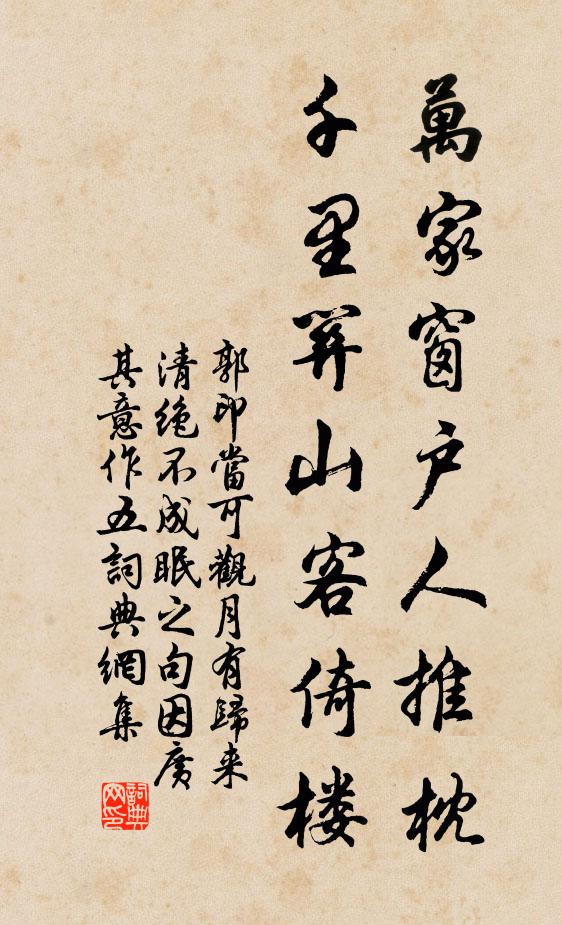 萬家窗户人推枕
千里関山客倚楼
郭印當可觀月有歸来
清絶不成眠之句因廣
其意作五詞典網集
詞典
网印